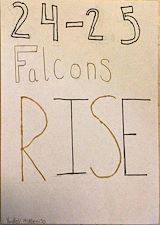 24-25
Falcons
RISE